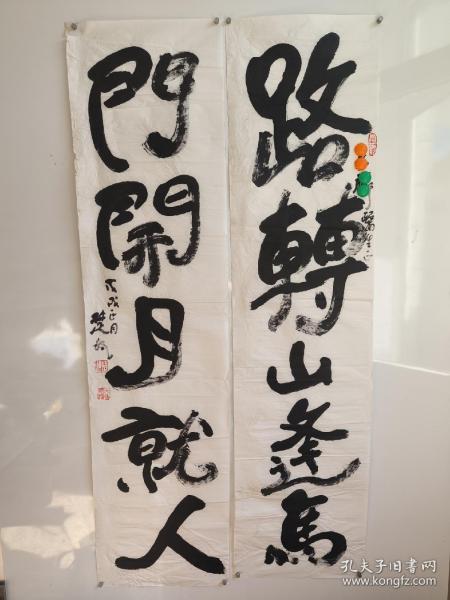 路轉山逢馬
醫生正
門閑月就人
丙戌正月
孔夫子旧书网
www.kongfz.com